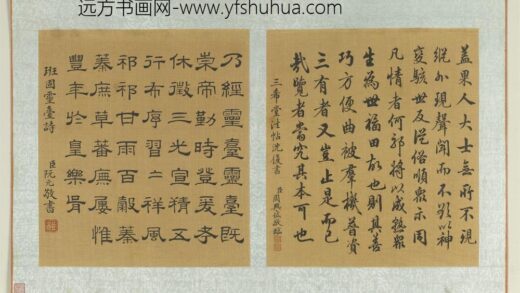 远方书画网-www.yfshuhua.com
蓋果人大士無所不現
縱外現聲聞而不以神
變駭世及從俗順眾示同
凡情者何邪將以成熟眾
生為世福田故也則其善
巧方便曲被羣機普資
三有者又豈止是而已
哉覽者當究其本可也
三希堂法帖沈復書
臣周興岱敬臨
乃經靈臺靈臺既
崇帝勤時登爰考
休徵三光宣精五
行布序習=祥風
祁祁甘雨百穀蓁
蓁庶草蕃廡屢惟
豐年於皇樂胥
班固靈臺詩
臣阮元敬書